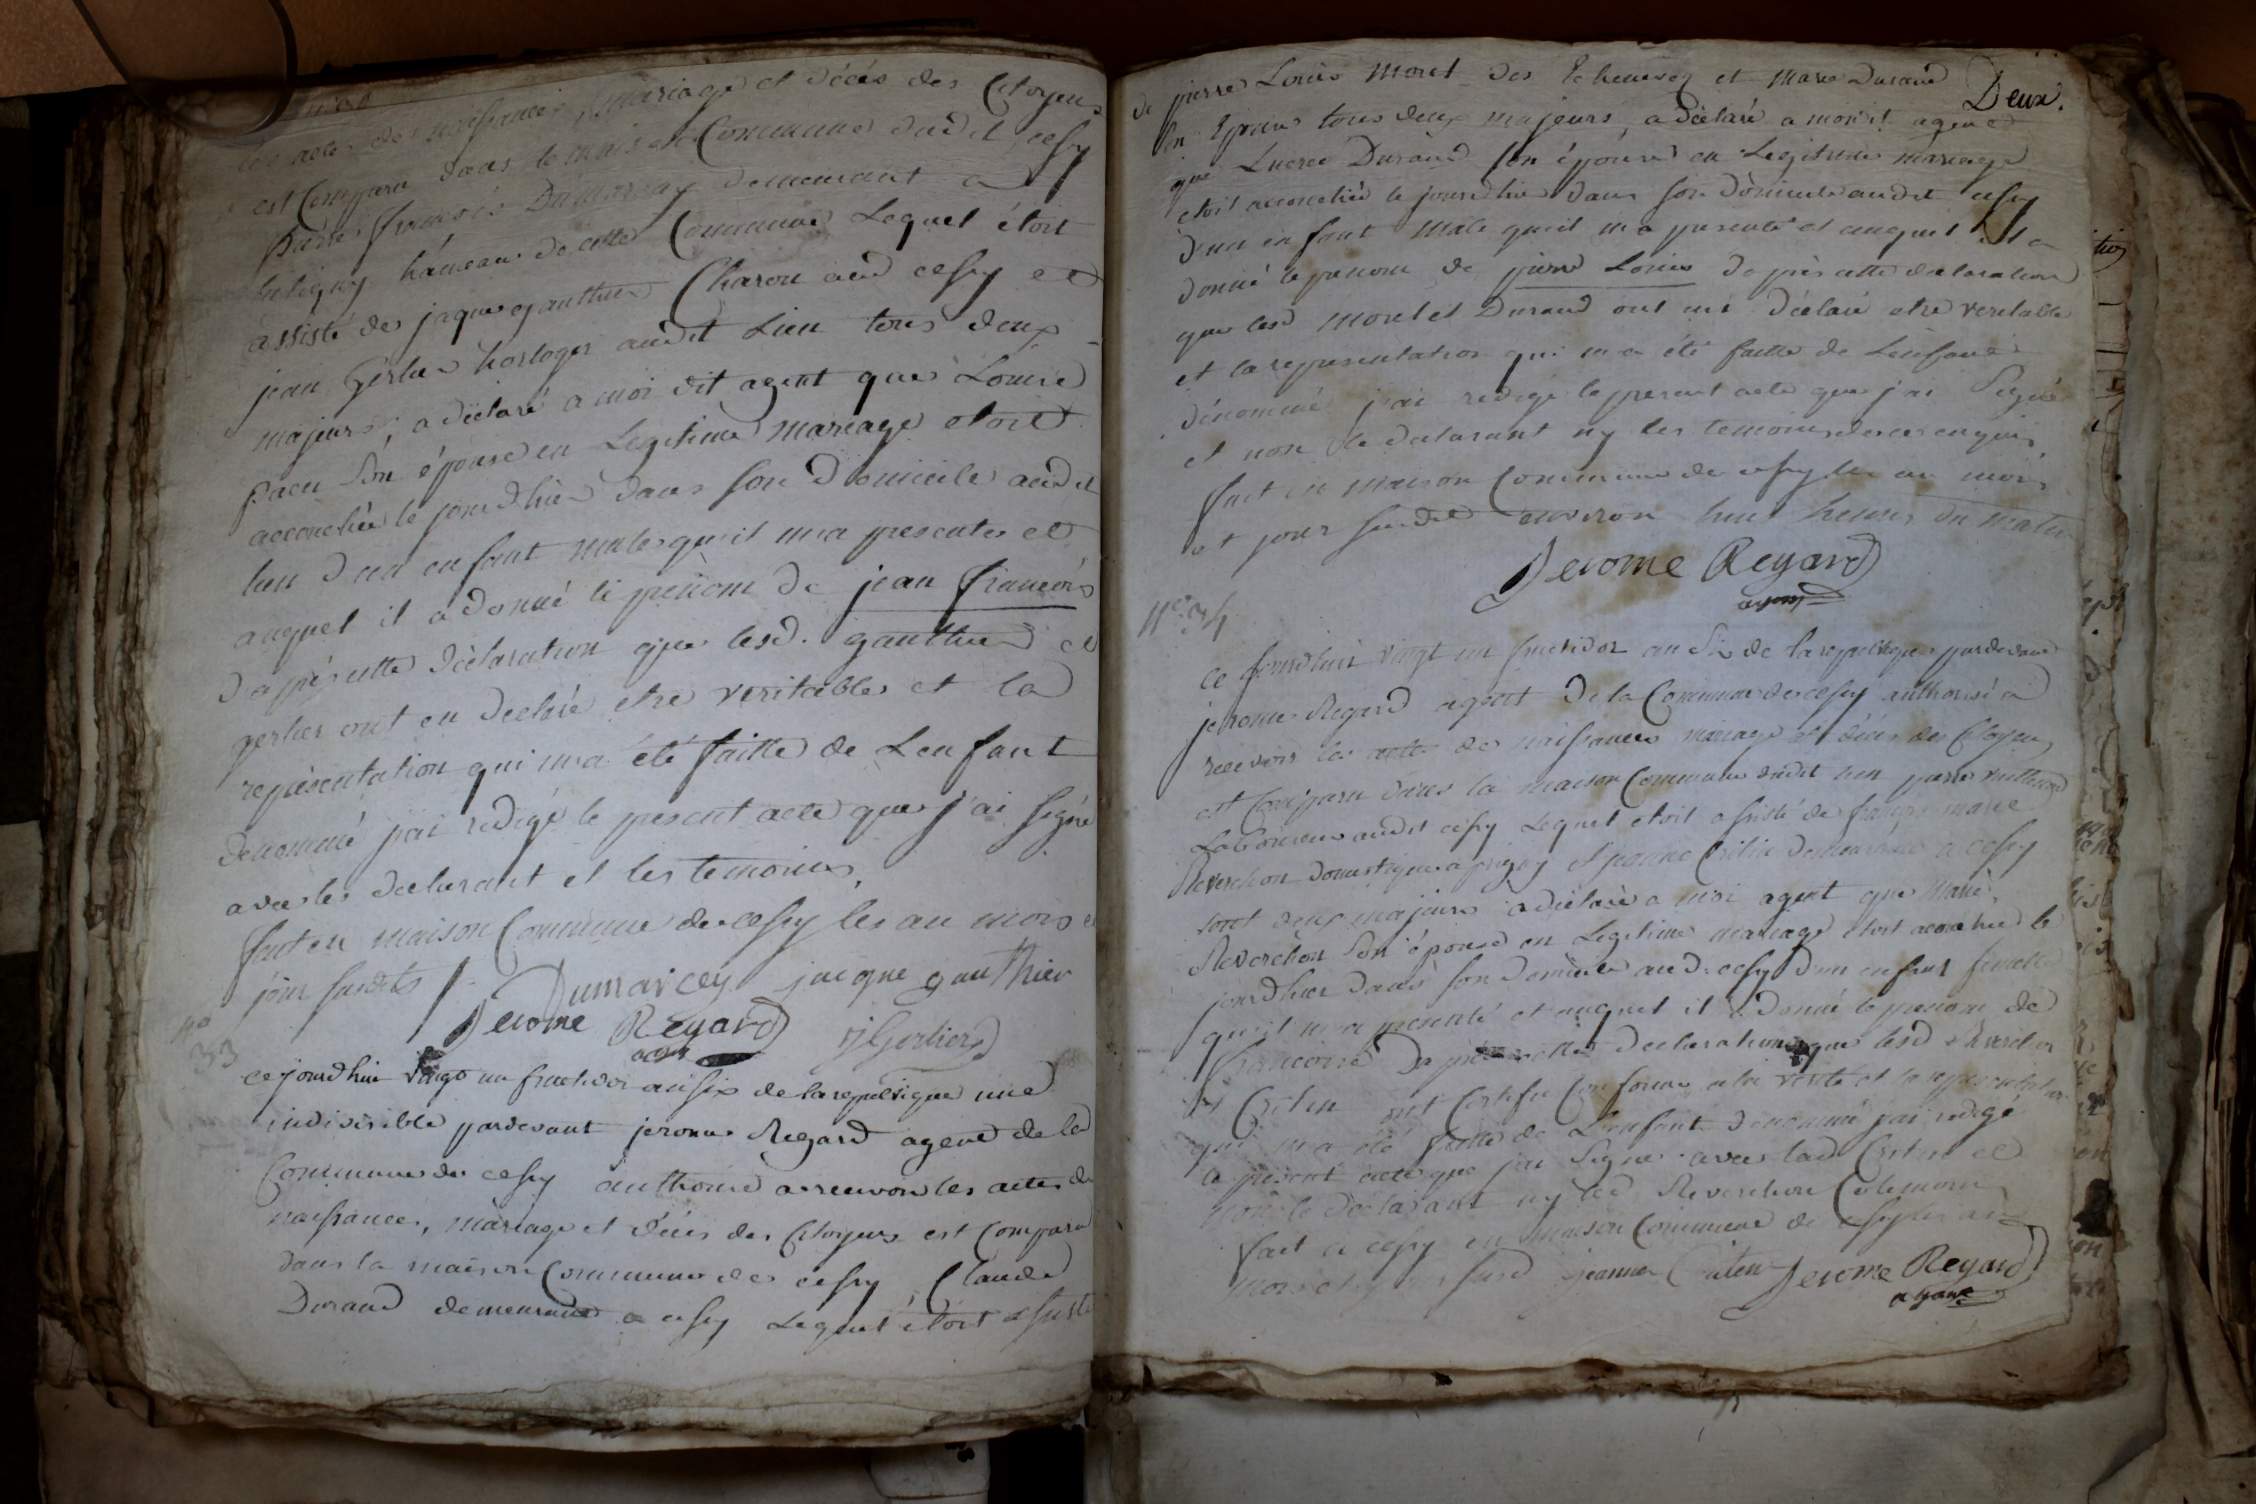 les actes de naissances, mariage et décés des Citoyens
est Comparu dans la maison Commune dudit cessy
françois Dumarcey demeurant a
hameau de cette Commune Lequel étoit
assisté de jaque gauthier Charon aud cessy et
jean Gerlier horloger audit Lieu tous deux
majeurs, a déclaré a moi dit agent que Louise
son épouse en Legitime mariage etoit
accouchée le jourdhui dans son Domicile audit
lieu d'un enfant male quil ma presenté et
auquel il a donné le prénom de jean françois
d'après cette déclaration que lesd. gauthier et
gerlier ont en declaré etre veritable et la
représentation qui ma été faitte de Lenfant
denommé jai redigé le present acte que j'ai signé
avec le declarant et les temoins,
fait en maison Commune de cessy les an mois et
jour susdits
Dumarcey jacque gauthier
Jerome Regard agent j Gerlier
No 33
ce jourdhui vingt un fructidor an six de la republique une
indivisible pardevant jerome Regard agent de la
Commune de cessy authorisé a recevoir les actes de
naissances, mariage et décés des Citoyens est Comparu
dans la maison Commune de cessy Claude
Durand demeurant a cessy Lequel étoit assisté
Deux.
de pierre Louis Moret des Echenevex et Marie Durand
son Epouse tous deux majeurs, a déclaré a moi dit agent
que Durand son épouse en Legitime mariage
etoit accouchée le jourdhui dans son domicile audit cessy
d'un enfant male quil ma presenté et auquel il a
donné le prenom de pierre Louis d'après cette declaration
que lesd moret et Durand ont mi déclaré etre veritable
et la representation qui ma été faitte de Lenfant
dénommé jai redigé le present acte que j'ai Signé
et non le declarant ny les temoins de ce enquis
fait en maison Commune de cessy les an mois
et jour susdit environ huit heures du matin
Jerome Regard
agent
No 34
ce jourdhui vingt un fructidor an Six de la republique pardevant
jerome Regard agent de la Commune de cessy authorisé a
recevoir les actes de naissances mariage et décés des Citoyens
est Comparu dans la maison Commune dudit lieu pierre
Laboureur audit cessy Lequel etoit assisté de françois marie
Reverchon domestique a et jeanne demeurant a cessy
tout deux majeurs a déclaré a moi agent que Marie
Reverchon Son épouse en Legitime mariage etoit accouchée le
jourdhui dans son domicile aud. cessy d'un enfant femelle
qu'il ma presenté et auquel il a donné le prenom de
françoise d'après cette declaration que lesd Reverchon
et ont Certifié Conforme a la verité et la representation
qui ma été faitte de Lenfant denommé jai redigé
le present acte que jai Signé avec lad et
non le declarant ny led Reverchon
fait a cessy en maison Commune de cessy les an
mois et jour susd jeanne Jerome Regard
agent